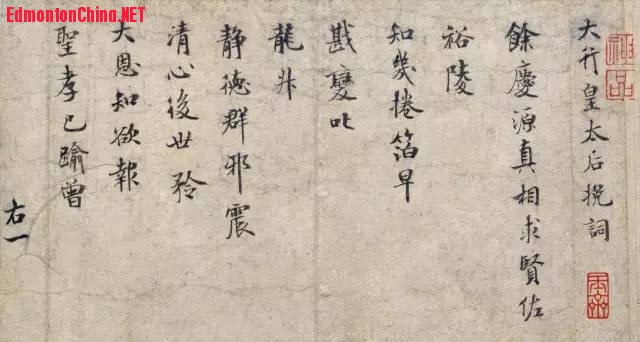 EdmontonChina.NET
大行皇太后挽詞
餘慶源真相求賢佐
裕陵
知幾捲箔早
戡變叱
龍升
静德群邪震
清心後世矜
大恩知欲報
聖孝已踰曾
右一